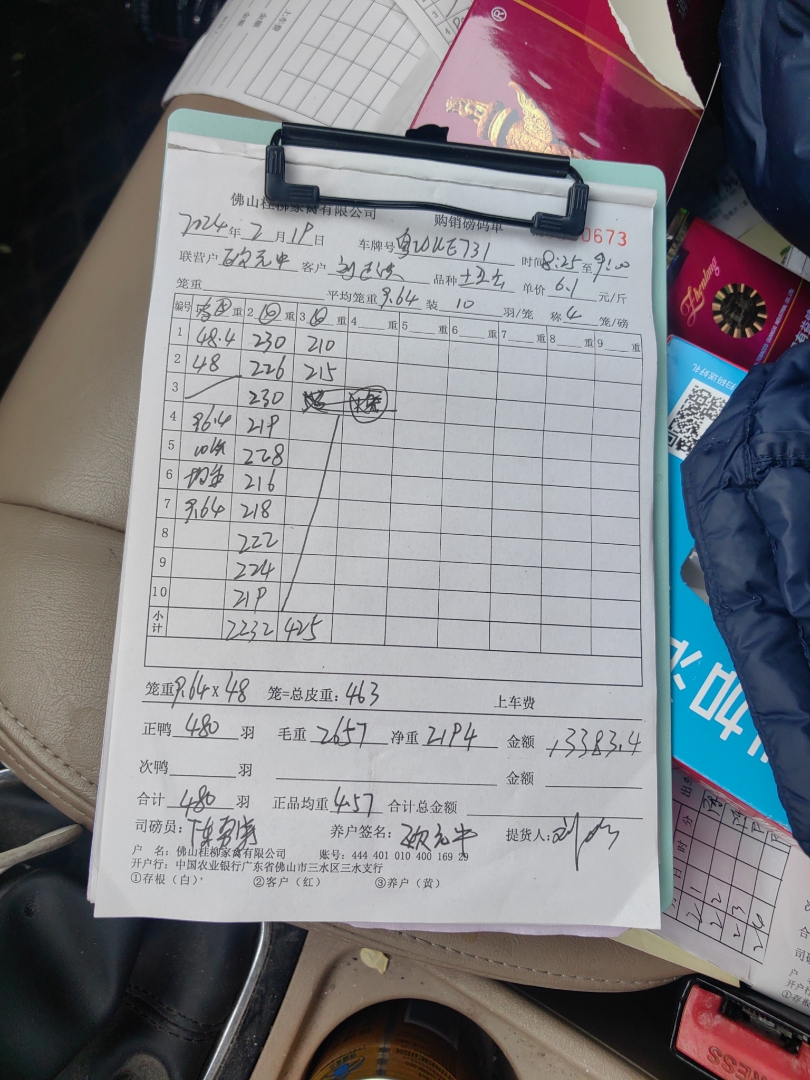 佛山桂柳家禽有限公司 购销磅码单 0673
2024年2月19日 车牌号 时间8:25至9:00
联营户 欧元中 客户 品种 单价 6.1 元/斤
笼重 平均笼重 9.64 装 10 羽/笼 称 4 笼/磅
编号 重 2 重 3 重 4 重 5 重 6 重 7 重 8 重 9 重
1 48.4 230 210
2 48 226 215
3 230
4 96.4 219
5 10笼 228
6 均重 216
7 9.64 218
8 222
9 224
10 219
小计 2232 425
笼重9.64×48 笼=总皮重:463 上车费
正鸭 480 羽 毛重 2657 净重 2194 金额 13383.4
次鸭 羽 金额
合计 480 羽 正品均重 4.57 合计总金额
司磅员: 养户签名: 欧元中 提货人:
户 名: 佛山桂柳家禽有限公司 账号: 444 401 010 400 169 29
开户行: 中国农业银行广东省佛山市三水区三水支行
①存根(白) ②客户(红) ③养户(黄)
®
Zhenlong